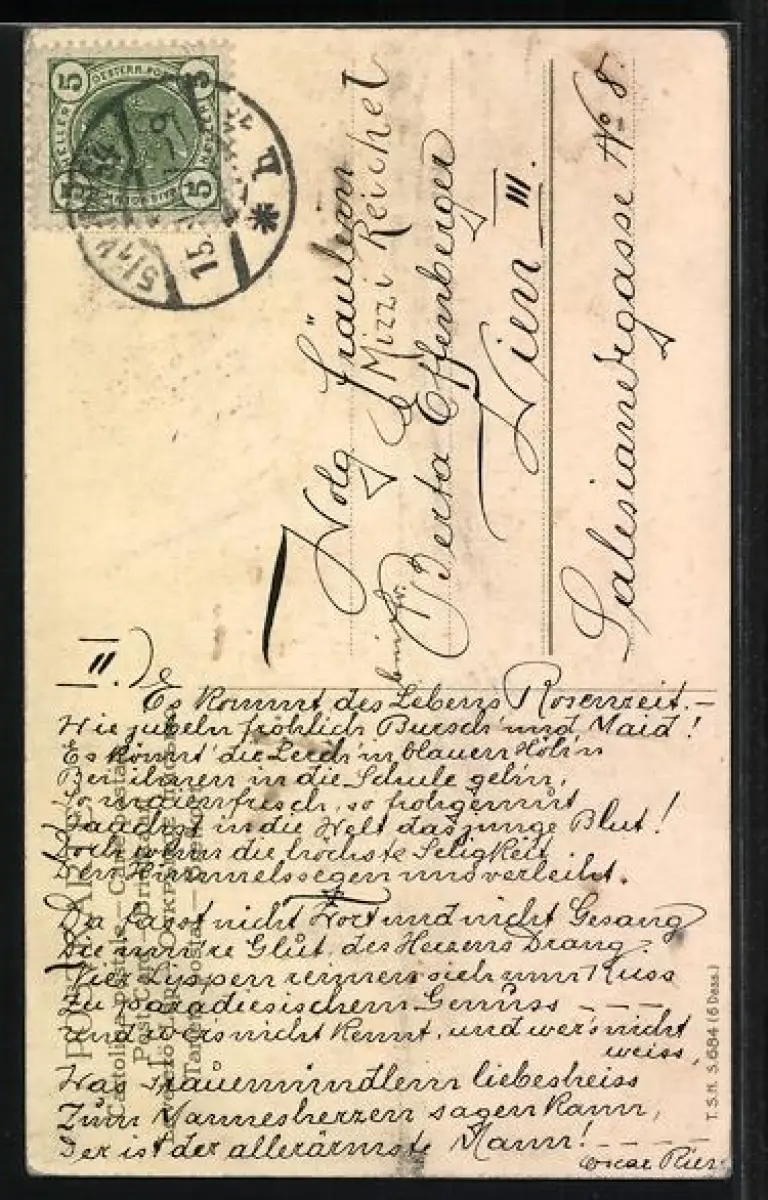 5 OESTERR. POST 5
HELLER HELLER
5 5
5/1
15
Wolg. Fräulein
Mizzi Reichel
bei Fr.
Berta Effenberger
Wien III.
Salesianergasse No 8.
II.)
Es kommt des Lebens Rosenzeit. –
Wie jubeln fröhlich Bursch' und Maid!
Es könnt' die Lerch' in blauen Höh'n
Bei ihnen in die Schule geh'n,
So maienfrisch, so frohgemut
Jauchzt in die Welt das junge Blut!
Doch wenn die höchste Seligkeit
Den Himmelssegen uns verleiht.
Da fasst nicht Wort und nicht Gesang
Die inn're Glut, des Herzens Drang?
Vier Lippen einen sich zum Kuss
Zu paradiesischem Genuss – – – –
Und wer's nicht kennt, und wer's nicht
weiss,
Was Frauenmündlein liebesheiss
Zum Mannesherzen sagen kann,
Der ist der allerärmste Mann! – – – –
Oscar Rier
Cartolina postale – Carte postale
Post Card
T. S. N. S. 684 (6 Dess.)